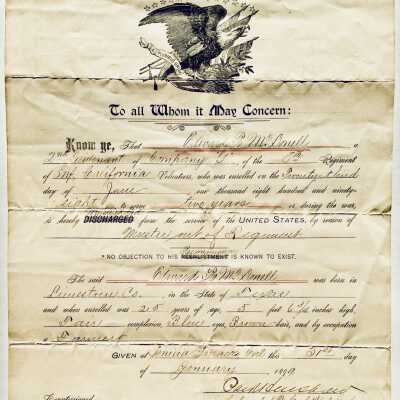 To all Whom it May Concern:
Know ye, That Edward P. McDonell a
2nd Lieutenant of Company "L" of the Regiment
of Inf. California Volunteers, who was enrolled on the
day of June one thousand eight hundred and ninety-
eight to serve two years or during the war,
is hereby DISCHARGED from the service of the UNITED STATES, by reason of
Muster out of Regiment
• NO OBJECTION TO HIS REENLISTMENT IS KNOWN TO EXIST.
The said Edward P. McDonell was born in
Limestone Co. in the State of Texas
and when enrolled was 25 years of age, 5 feet 6 1/2 inches high,
Fair complexion Blue eyes, Brown hair, and by occupation
a Farmer
GIVEN at this 31st day
of January 1899
Countersigned